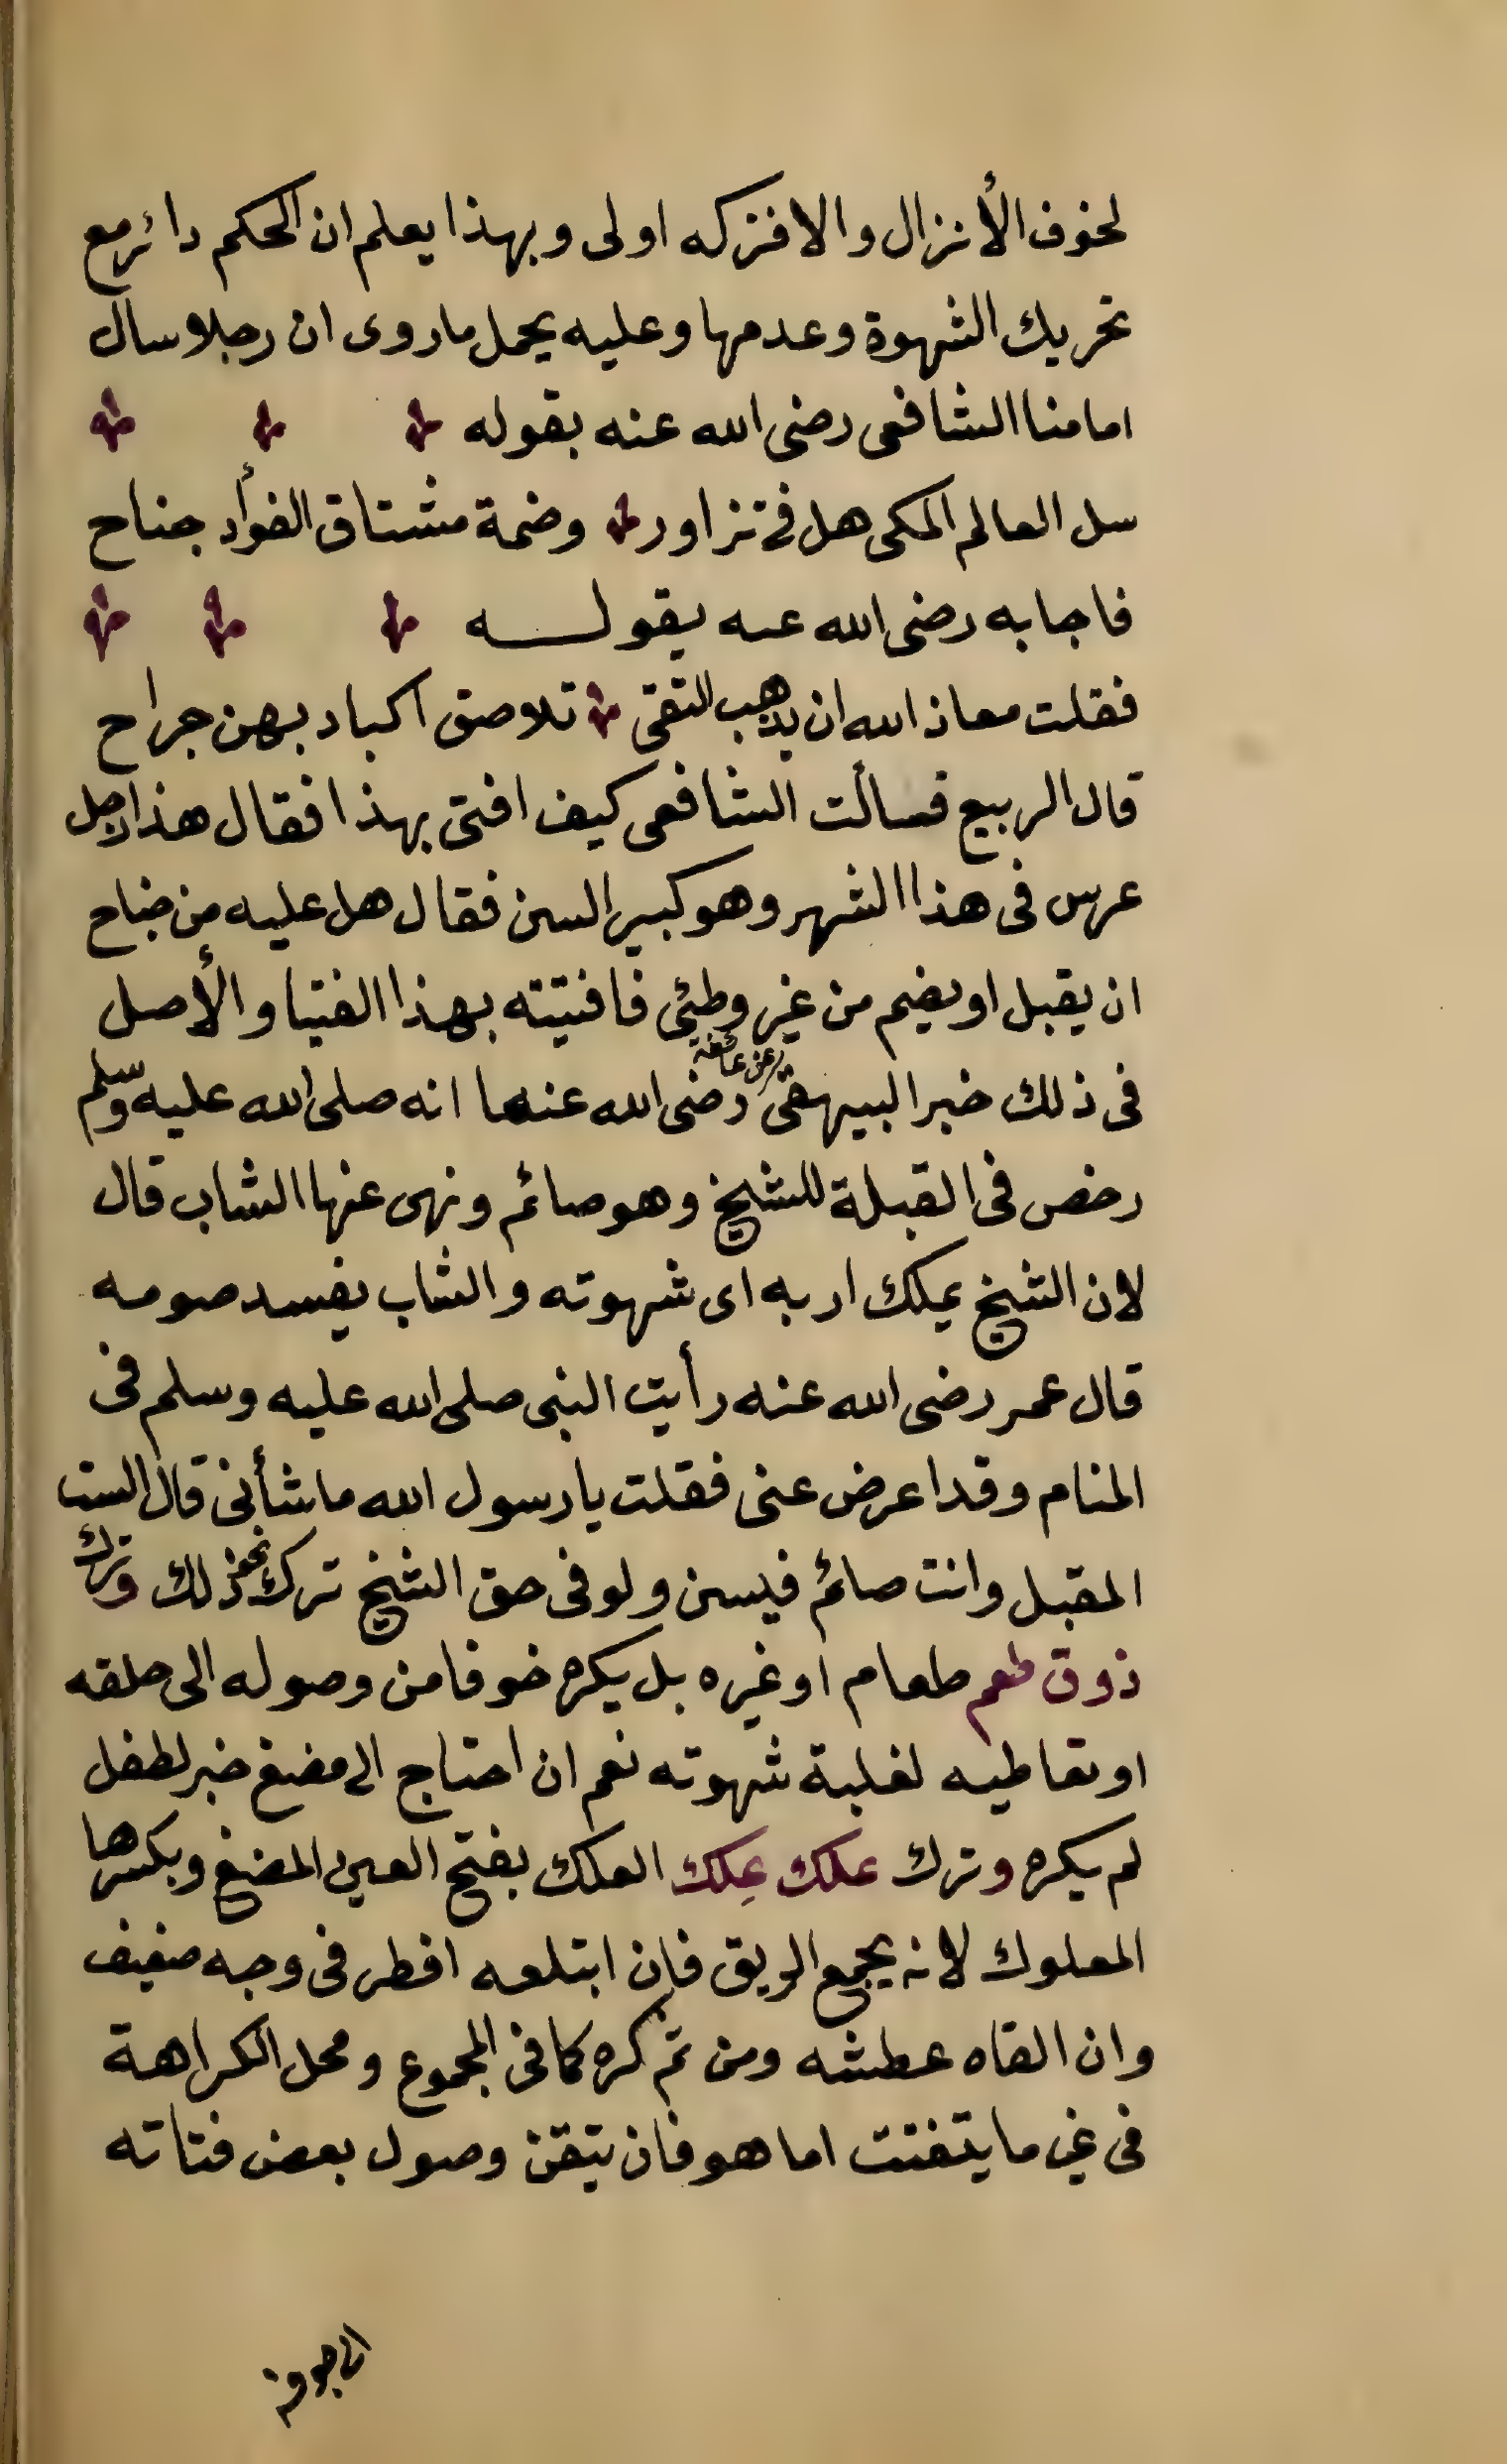 لخوف الأنزال والا فتركه اولى وبهذا يعلم ان الحكم دائر مع
تحريك الشهوة وعدمها وعليه يحمل ماروى ان رجلا سال
امامنا الشافعى رضى الله عنه بقوله
سل العالم المكى هل فى تزاور وضمة مشتاق الفوأد جناح
فاجابه رضى الله عنه بقوله
فقلت معاذ الله ان يذهب التقى تلاصق اكباد بهن جراح
قال الربيع فسالت الشافعى كيف افتى بهذا فقال هذا رجل
عرس فى هذا الشهر وهو كبير السن فقال هل عليه من جناح
ان يقبل او يضم من غير وطئى فافتيته بهذا الفتيا والأصل
فى ذلك خبر البيهقى عن عائشة رضى الله عنها انه صلى الله عليه وسلم
رخص فى القبلة للشيخ وهو صائم ونهى عنها الشاب قال
لان الشيخ يملك اربه اى شهوته والشاب يفسد صومه
قال عمر رضى الله عنه رأيت النبى صلى الله عليه وسلم فى
المنام وقد اعرض عنى فقلت يا رسول الله ما شأنى قال الست
المقبل وانت صائم فيسن ولو فى حق الشيخ ترك نحو ذلك وترك
ذوق طعم طعام او غيره بل يكره خوفا من وصوله الى حلقه
او تعاطيه لغلبة شهوته نعم ان احتاج الى مضغ خبز لطفل
لم يكره وترك علك عِلك العلك بفتح العين المضغ وبكسرها
المعلوك لانه يجمع الريق فان ابتلعه افطر فى وجه ضعيف
وان القاه عطشه ومن ثم كره كما فى المجموع ومحل الكراهة
فى غير ما يتفتت اما هو فان تيقن وصول بعض فتاته
الى جوفه